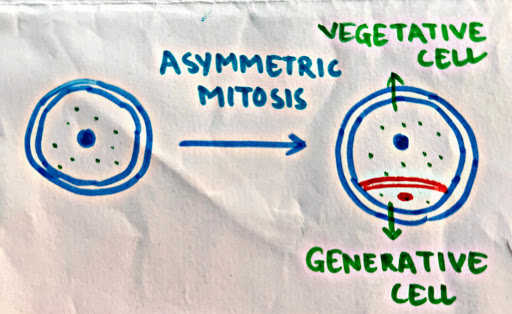 VEGETATIVE
CELL
ASYMMETRIC
MITOSIS
GENERATIVE
CELL